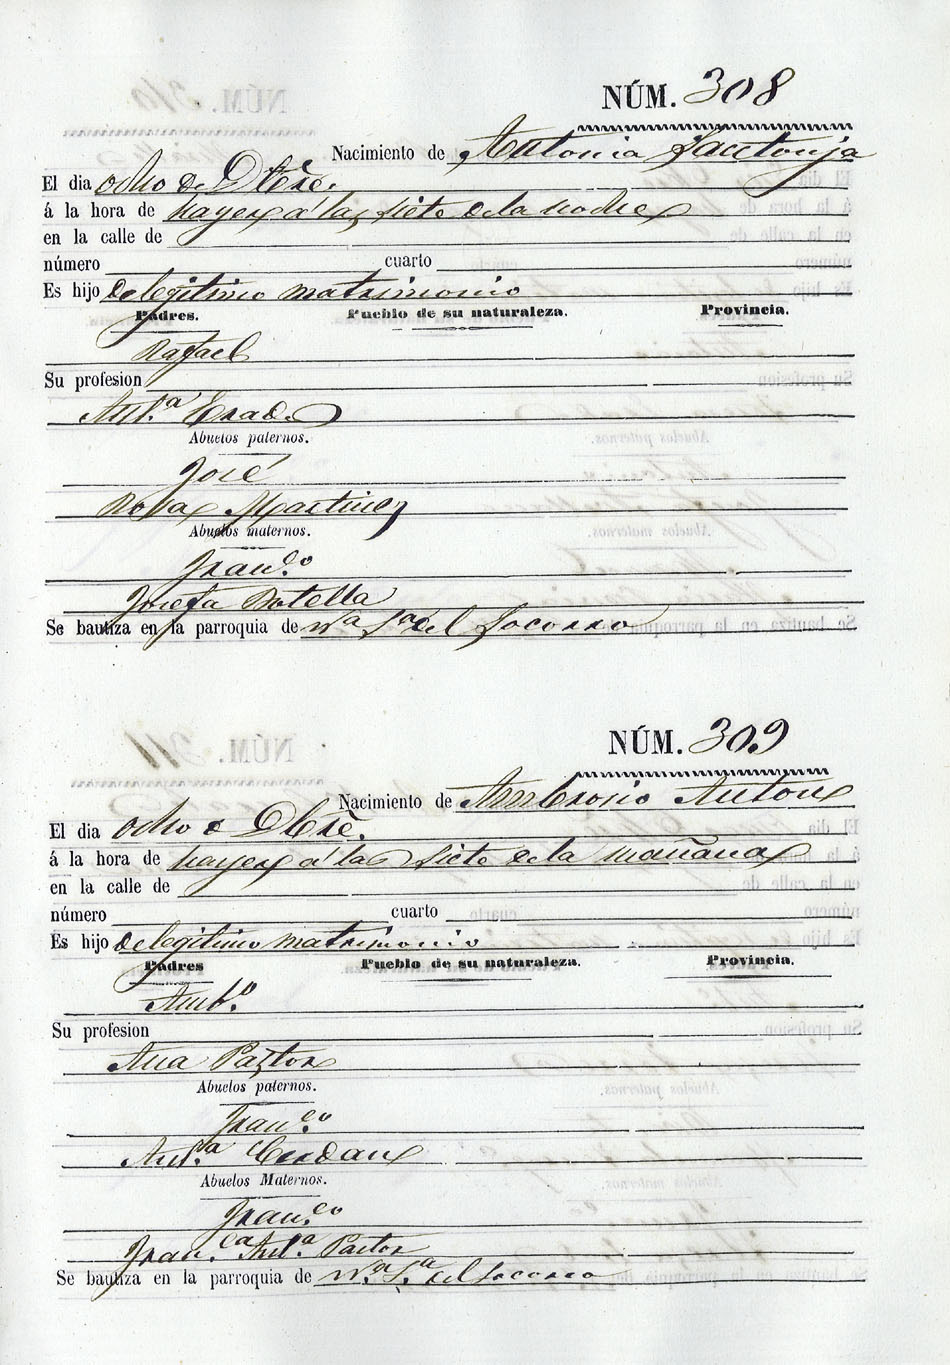 NÚM. 308
Nacimiento de Antonia Santonja
El dia ocho de Dbre.
á la hora de hayer a las siete de la noche
en la calle de
número cuarto
Es hijo de legitimo matrimonio
Padres. Pueblo de su naturaleza. Provincia.
Rafael
Su profesion
Ant.ª
Abuelos paternos.
José
Rosa Martinez
Abuelos maternos.
Fran.co
Josefa Botella
Se bautiza en la parroquia de N.ª S.ª del Socorro
NÚM. 309
Nacimiento de Ambrosio Anton
El dia ocho de Dbre.
á la hora de hayer a las siete de la mañana
en la calle de
número cuarto
Es hijo de legitimo matrimonio
Padres Pueblo de su naturaleza. Provincia.
Amb.º
Su profesion
Ana Pastor
Abuelos paternos.
Fran.co
Ant.ª Cerdan
Abuelos Maternos.
Fran.co
Fran.ca Ant.ª Pastor
Se bautiza en la parroquia de N.ª S.ª del Socorro